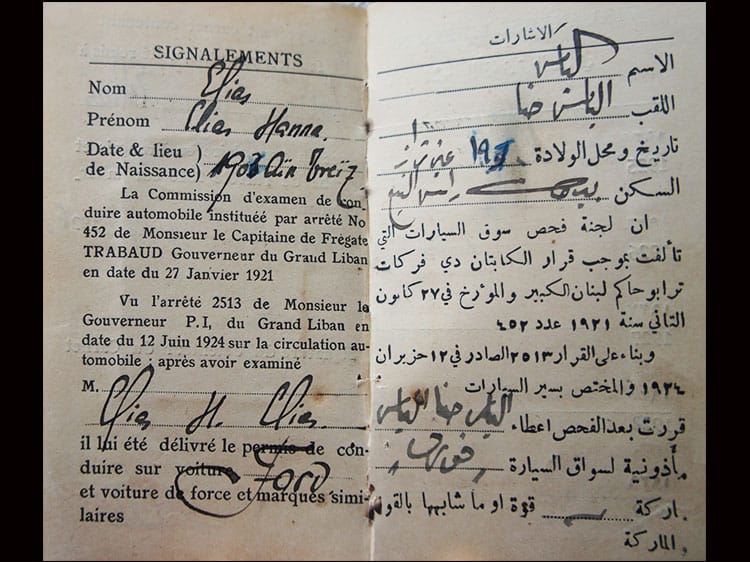 SIGNALEMENTS
Nom Elias
Prénom Elias Hanna.
Date & lieu
de Naissance) Aïn Treïz
La Commission d'examen de con-
duire automobile instituéé par arrêté No
452 de Monsieur le Capitaine de Frégate
TRABAUD Gouverneur du Graud Liban
en date du 27 Janvier 1921
Vu l'arrêté 2513 de Monsieur le
Gouverneur P.I, du Grand Liban en
date du 12 Juin 1924 sur la circulation au-
tomobile ; après avoir examiné
M.
Elias H. Elias.
il lui été délivré le permis de con-
duire sur voiture Ford
et voiture de force et marques simi-
laires
الاشارات
الاسم الياس
اللقب الياس حنا
تاريخ ومحل الولادة عين تريز
السكن بيروت راس النبع
ان لجنة فحص سوق السيارات التي
تألفت بموجب قرار الكابتان دي فركات
ترابو حاكم لبنان الكبير والمؤرخ في ٢٧ كانون
الثاني سنة ١٩٢١ عدد ٤٥٢
وبناء على القرار ٢٥١٣ الصادر في ١٢ حزيران
١٩٢٤ والمختص بسير السيارات
قررت بعد الفحص اعطاء الياس حنا الياس
مأذونية لسواق السيارة فورد
اركة قوة او ما شابهها بالقو
الماركة